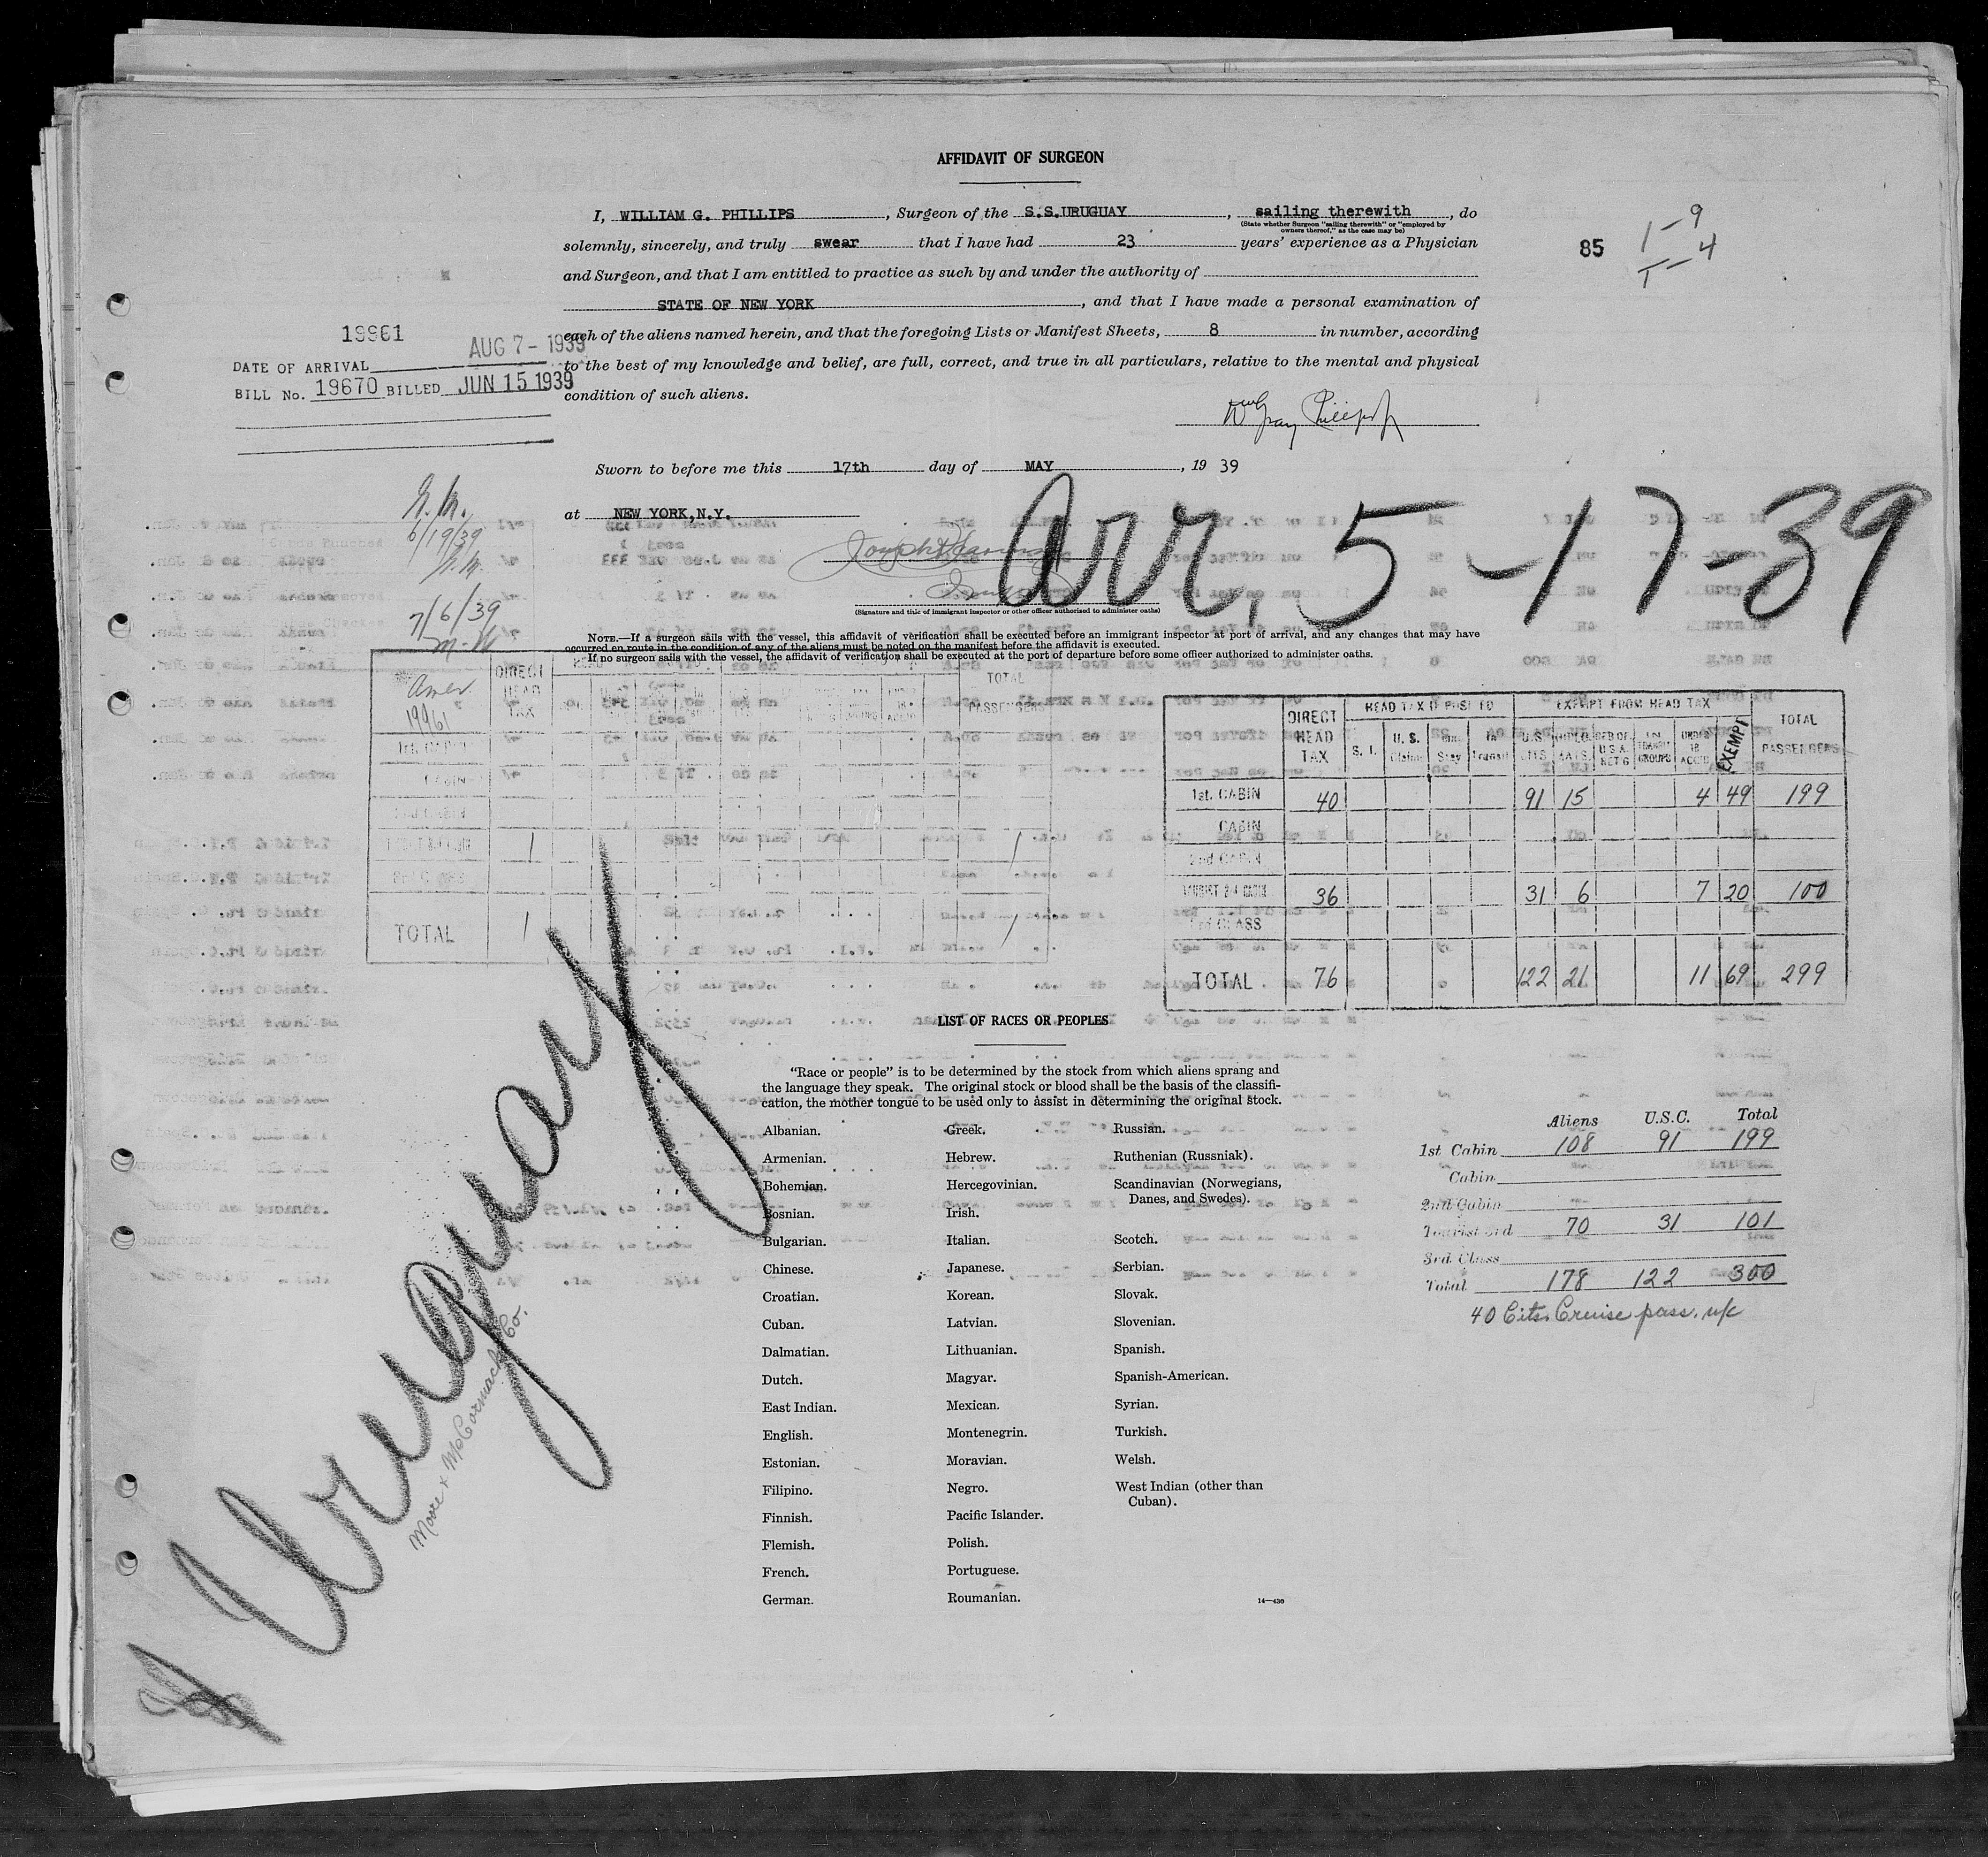 AFFIDAVIT OF SURGEON
I, WILLIAM G. PHILLIPS, Surgeon of the S.S.URUGUAY, sailing therewith, do
(State whether Surgeon "sailing therewith" or "employed by
owners thereof," as the case may be)
solemnly, sincerely, and truly swear that I have had 23 years' experience as a Physician
and Surgeon, and that I am entitled to practice as such by and under the authority of
STATE OF NEW YORK, and that I have made a personal examination of
each of the aliens named herein, and that the foregoing Lists or Manifest Sheets, 8 in number, according
to the best of my knowledge and belief, are full, correct, and true in all particulars, relative to the mental and physical
condition of such aliens.
85
1-9
T-4
19961
DATE OF ARRIVAL AUG 7- 1939
BILL No. 19670 BILLED JUN 15 1939
Wm Gray Phillips Jr
Sworn to before me this 17th day of MAY, 19 39
at NEW YORK,N.Y.
Arr. 5-17-39
6/19/39
7/6/39
(Signature and title of immigrant inspector or other officer authorized to administer oaths)
NOTE.—If a surgeon sails with the vessel, this affidavit of verification shall be executed before an immigrant inspector at port of arrival, and any changes that may have
occurred en route in the condition of any of the aliens must be noted on the manifest before the affidavit is executed.
If no surgeon sails with the vessel, the affidavit of verification shall be executed at the port of departure before some officer authorized to administer oaths.
Amer.
19961
DIRECT HEAD TAX
TOTAL PASSENGERS
1st. CABIN
CABIN
2nd CABIN
1 1
TOTAL 1 1
DIRECT HEAD TAX
HEAD TAX DEPOSITED
EXEMPT FROM HEAD TAX
TOTAL PASSENGERS
S. I.
U. S.
Stay
In Transit
U.S. CITS.
UNDER 16 ACC'D
EXEMPT
1st. CABIN 40 91 15 4 49 199
CABIN
2nd CABIN
TOURIST 3rd CABIN 36 31 6 7 20 100
3rd CLASS
TOTAL 76 122 21 11 69 299
LIST OF RACES OR PEOPLES
"Race or people" is to be determined by the stock from which aliens sprang and
the language they speak. The original stock or blood shall be the basis of the classifi-
cation, the mother tongue to be used only to assist in determining the original stock.
Albanian.
Armenian.
Bohemian.
Bosnian.
Bulgarian.
Chinese.
Croatian.
Cuban.
Dalmatian.
Dutch.
East Indian.
English.
Estonian.
Filipino.
Finnish.
Flemish.
French.
German.
Greek.
Hebrew.
Hercegovinian.
Irish.
Italian.
Japanese.
Korean.
Latvian.
Lithuanian.
Magyar.
Mexican.
Montenegrin.
Moravian.
Negro.
Pacific Islander.
Polish.
Portuguese.
Roumanian.
Russian.
Ruthenian (Russniak).
Scandinavian (Norwegians,
Danes, and Swedes).
Scotch.
Serbian.
Slovak.
Slovenian.
Spanish.
Spanish-American.
Syrian.
Turkish.
Welsh.
West Indian (other than
Cuban).
14—430
Aliens U.S.C. Total
1st Cabin 108 91 199
Cabin
2nd Cabin
Tourist 3rd 70 31 101
3rd Class
Total 178 122 300
40 Cits. Cruise pass. n/c
Uruguay
Moore & McCormack Co.